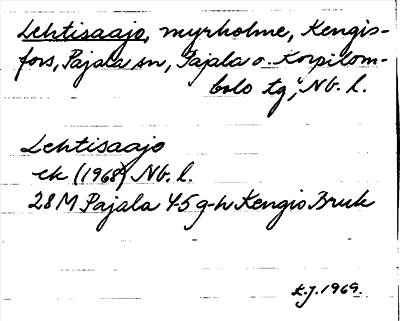 Lehtisaajo, myrholme, Kengis-
fors, Pajala sn, Pajala o. Korpilom-
bolo tg, Nb. l.
Lehtisaajo
ek (1968) Nb. l.
28M Pajala 4-5 g-h Kengis Bruk
E.J. 1969.